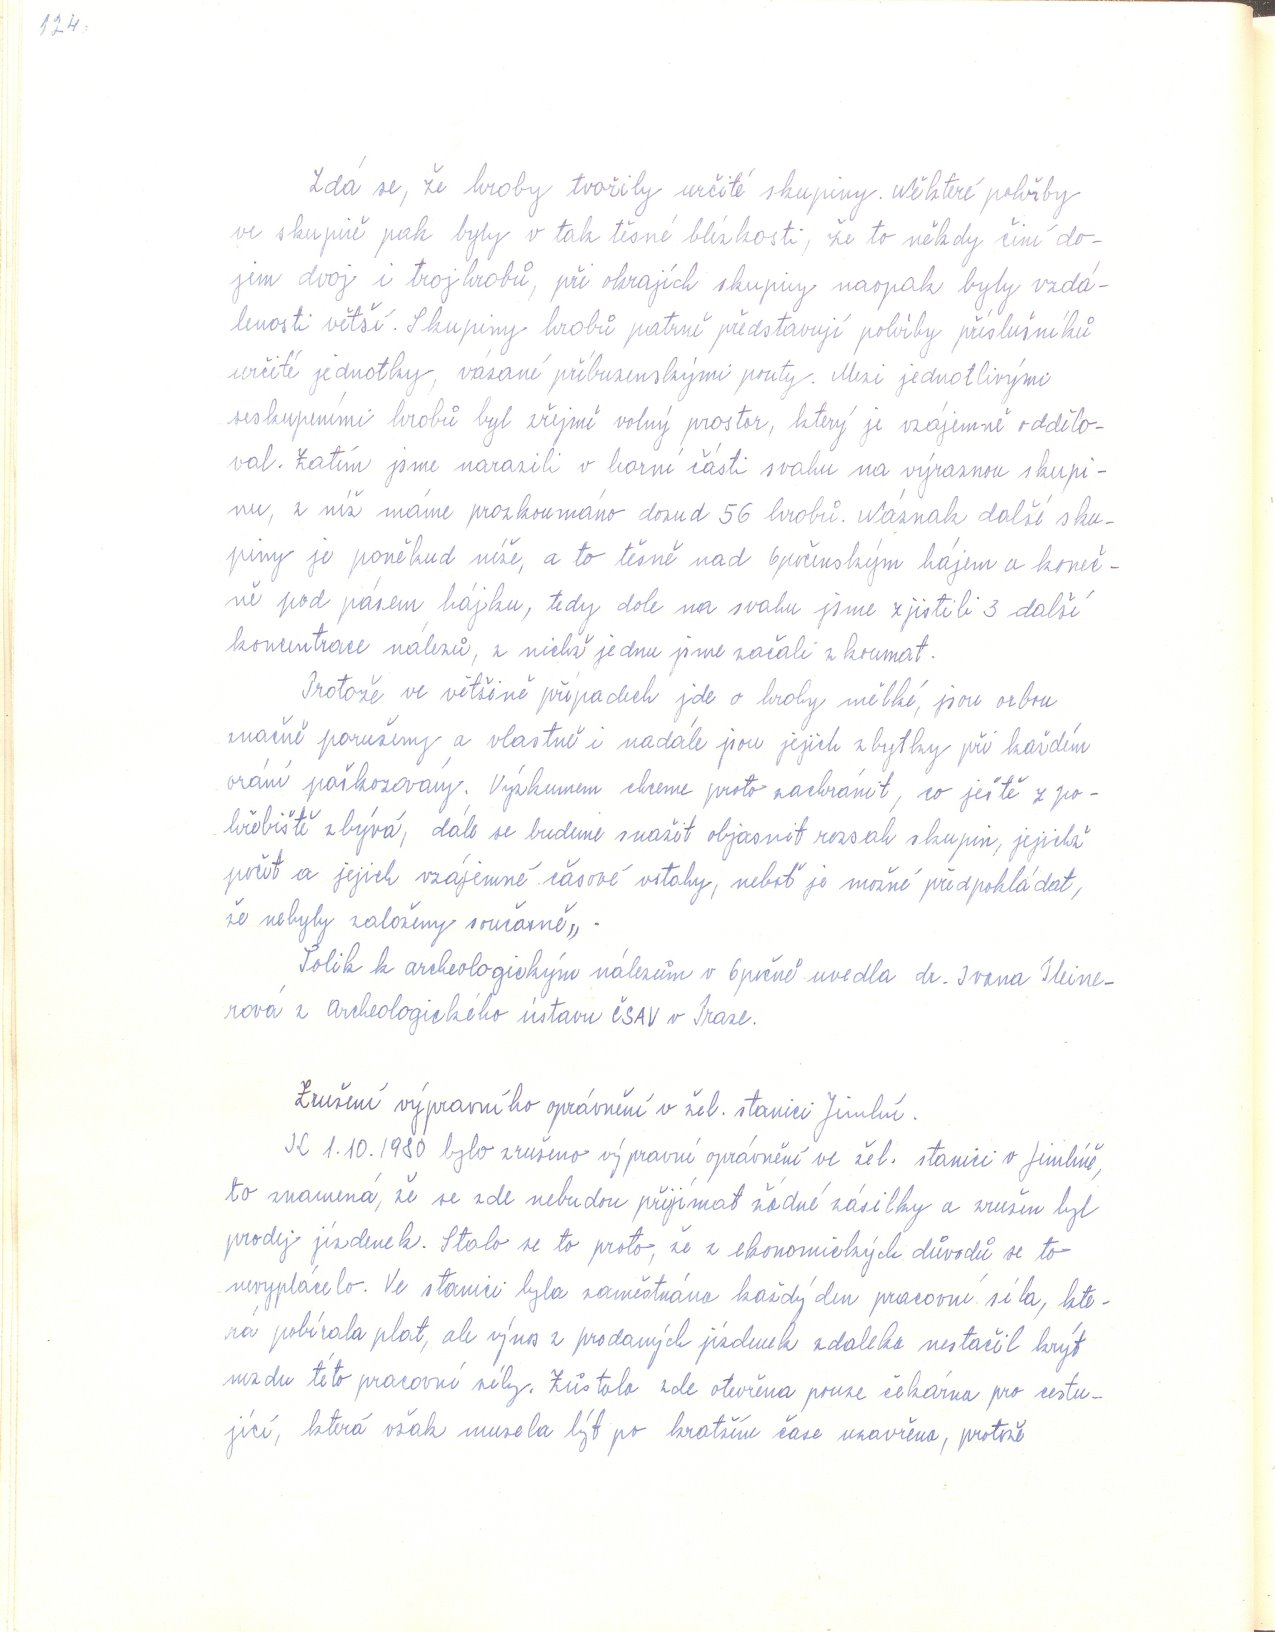 124.
Zdá se, že hroby tvořily určité skupiny. Některé pohřby
ve skupině pak byly v tak těsné blízkosti, že to někdy činí do-
jem dvoj i trojhrobů, při okrajích skupiny naopak byly vzdá-
lenosti větší. Skupiny hrobů patrně představují pohřby příslušníků
určité jednotky, vázané příbuzenskými pouty. Mezi jednotlivými
seskupeními hrobů byl zřejmě volný prostor, který je vzájemně oddělo-
val. Zatím jsme narazili v horní části svahu na výraznou skupi-
nu, z níž máme prozkoumáno dosud 56 hrobů. Náznak další sku-
piny je poněkud níže, a to těsně nad Opočenským hájem a koneč-
ně pod pásem hájku, tedy dole na svahu jsme zjistili 3 další
koncentrace nálezů, z nichž jednu jsme začali zkoumat.
Protože ve většině případech jde o hroby mělké, jsou orbou
značně porušeny a vlastně i nadále jsou jejich zbytky při každém
orání poškozovány. Výzkumem chceme proto zachránit, co ještě z po-
hřebiště zbývá, dále se budeme snažit objasnit rozsah skupin, jejichž
počet a jejich vzájemné časové vztahy, neboť je možné předpokládat,
že nebyly založeny současně„.
Tolik k archeologickým nálezům v Opočně uvedla dr. Ivana Pleine-
rová z Archeologického ústavu ČSAV v Praze.
Zrušení výpravního oprávnění v žel. stanici Jimlín.
K 1.10.1980 bylo zrušeno výpravní oprávnění ve žel. stanici v Jimlíně,
to znamená, že se zde nebudou přijímat žádné zásilky a zrušen byl
prodej jízdenek. Stalo se to proto, že z ekonomických důvodů se to
nevyplácelo. Ve stanici byla zaměstnána každý den pracovní síla, kte-
rá pobírala plat, ale výnos z prodaných jízdenek zdaleka nestačil krýt
mzdu této pracovní síly. Zůstala zde otevřena pouze čekárna pro cestu-
jící, která však musela být po kratším čase uzavřena, protože